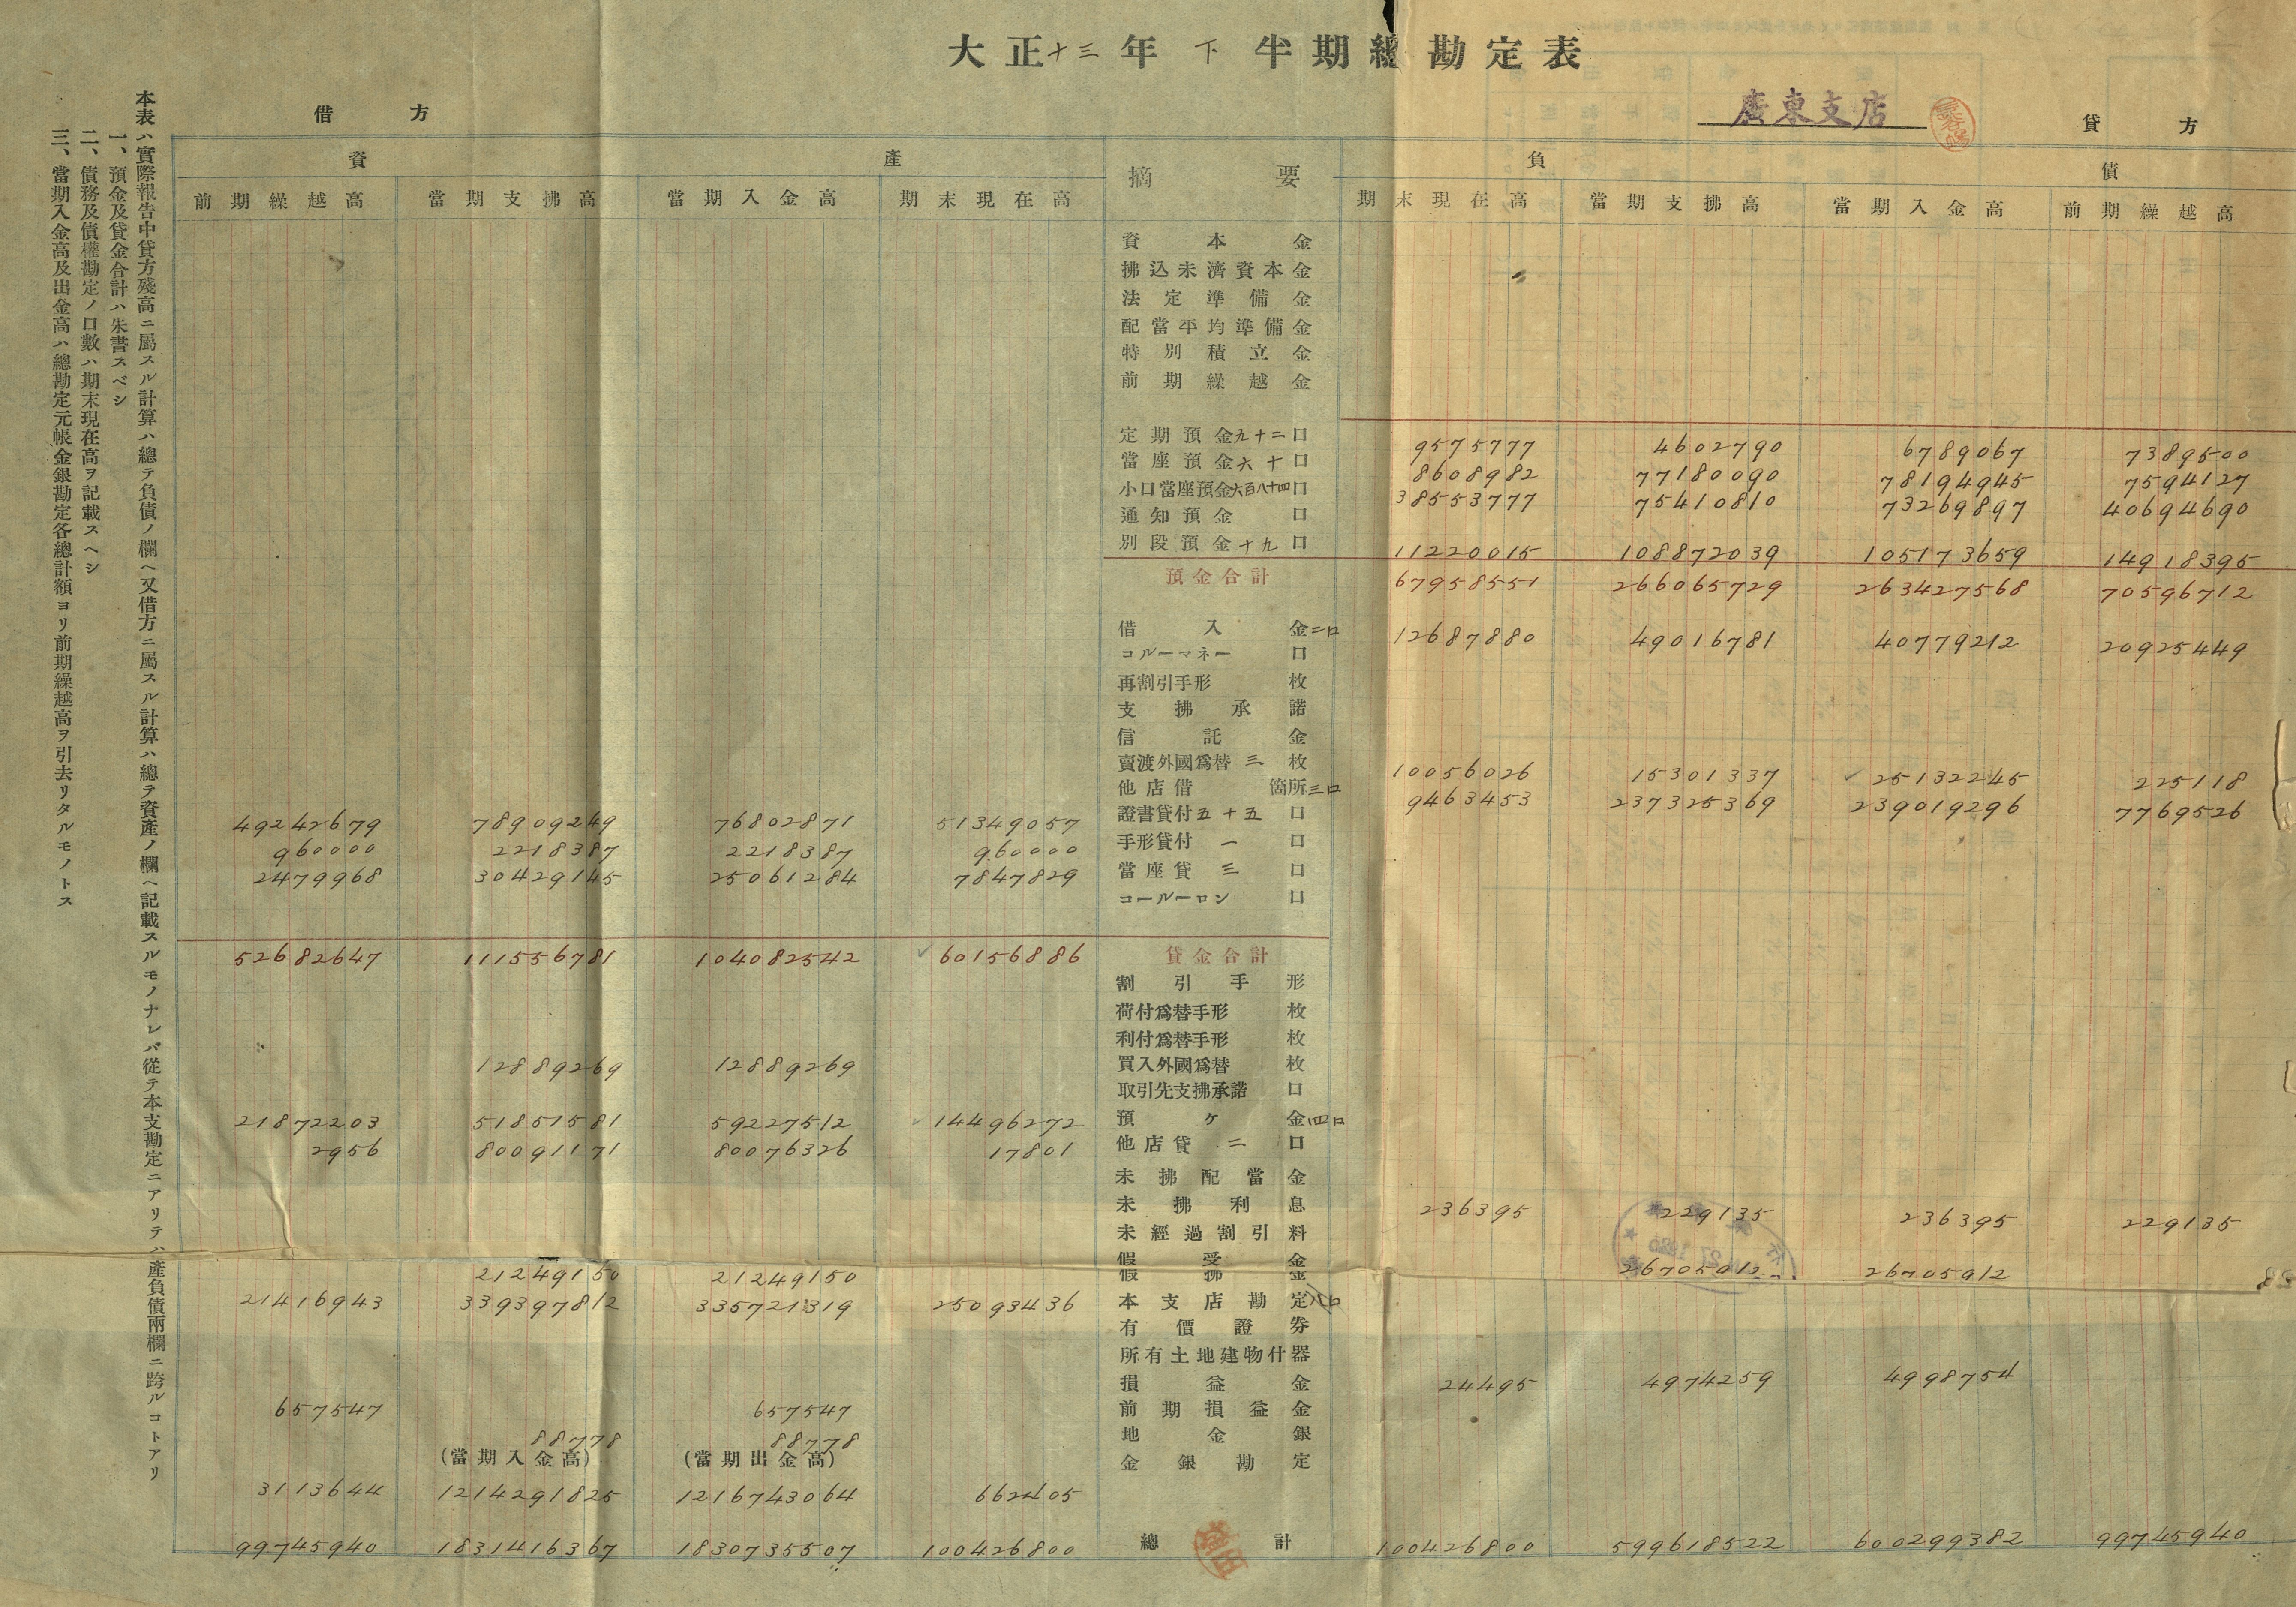 大正十三年下半期總勘定表
廣東支店
借方
貸方
本表ハ實際報告中貸方殘高ニ屬スル計算ハ總テ負債ノ欄ヘ又借方ニ屬スル計算ハ總テ資產ノ欄ヘ記載スルモノナレバ從テ本支勘定ニアリテハ產負債兩欄ニ跨ルコトアリ
一、預金及貸金合計ハ朱書スベシ
二、債務及債權勘定ノ口數ハ期末現在高ヲ記載スヘシ
三、當期入金高及出金高ハ總勘定元帳金銀勘定各總計額ヨリ前期繰越高ヲ引去リタルモノトス
資產 摘要 負債
前期繰越高 當期支拂高 當期入金高 期末現在高 期末現在高 當期支拂高 當期入金高 前期繰越高
資本金
拂込未濟資本金
法定準備金
配當平均準備金
特別積立金
前期繰越金
定期預金九十二口 9575777 4602790 6789067 7389500
當座預金六十口 8608982 77180090 78194945 7594127
小口當座預金六百八十四口 38553777 75410810 73269897 40694690
通知預金 口
別段預金十九口 11220015 108872039 105173659 14918395
預金合計 67958551 266065729 263427568 70596712
借入金二口 12687880 49016781 40779212 20925449
コルーマネー 口
再割引手形 枚
支拂承諾
信託金
賣渡外國爲替三枚 10056026 15301337 25132245 225118
他店借 箇所三口 9463453 237325369 239019296 7769526
49242679 78909249 76802871 51349057 證書貸付五十五口
960000 2218387 2218387 960000 手形貸付一口
2479968 30429145 25061284 7847829 當座貸三口
コールーロン 口
52682647 111556781 104082542 60156886 貸金合計
割引手形
荷付爲替手形 枚
利付爲替手形 枚
12889269 12889269 買入外國爲替 枚
取引先支拂承諾 口
21872203 51851581 59227512 14496272 預ケ金四口
2956 80091171 80076326 17801 他店貸二口
未拂配當金
未拂利息 236395 229135 236395 229135
未經過割引料
假受金 26705912 26705912
21249150 21249150 假拂金
21416943 339397812 335721319 25093436 本支店勘定八口
有價證券
所有土地建物什器
損益金 24495 4974259 4998754
657547 657547 前期損益金
88778 88778 地金銀
(當期入金高) (當期出金高) 金銀勘定
3113644 1214291825 1216743064 662405
99745940 1831416367 1830735507 100426800 總計 100426800 599618522 600299382 99745940